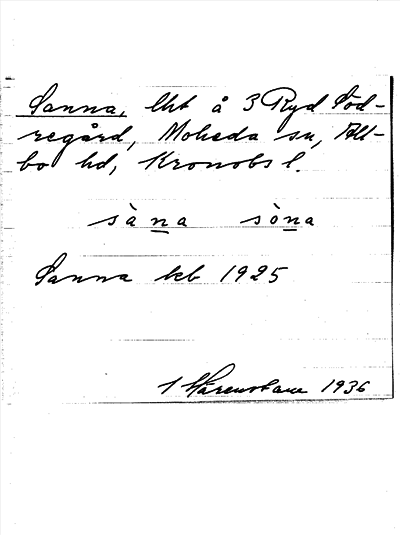 Sanna, lht å 3 Ryd Söd-
regård, Moheda sn, All-
bo hd, Kronobs l.
sàna sòna
Sanna kb 1925
1936